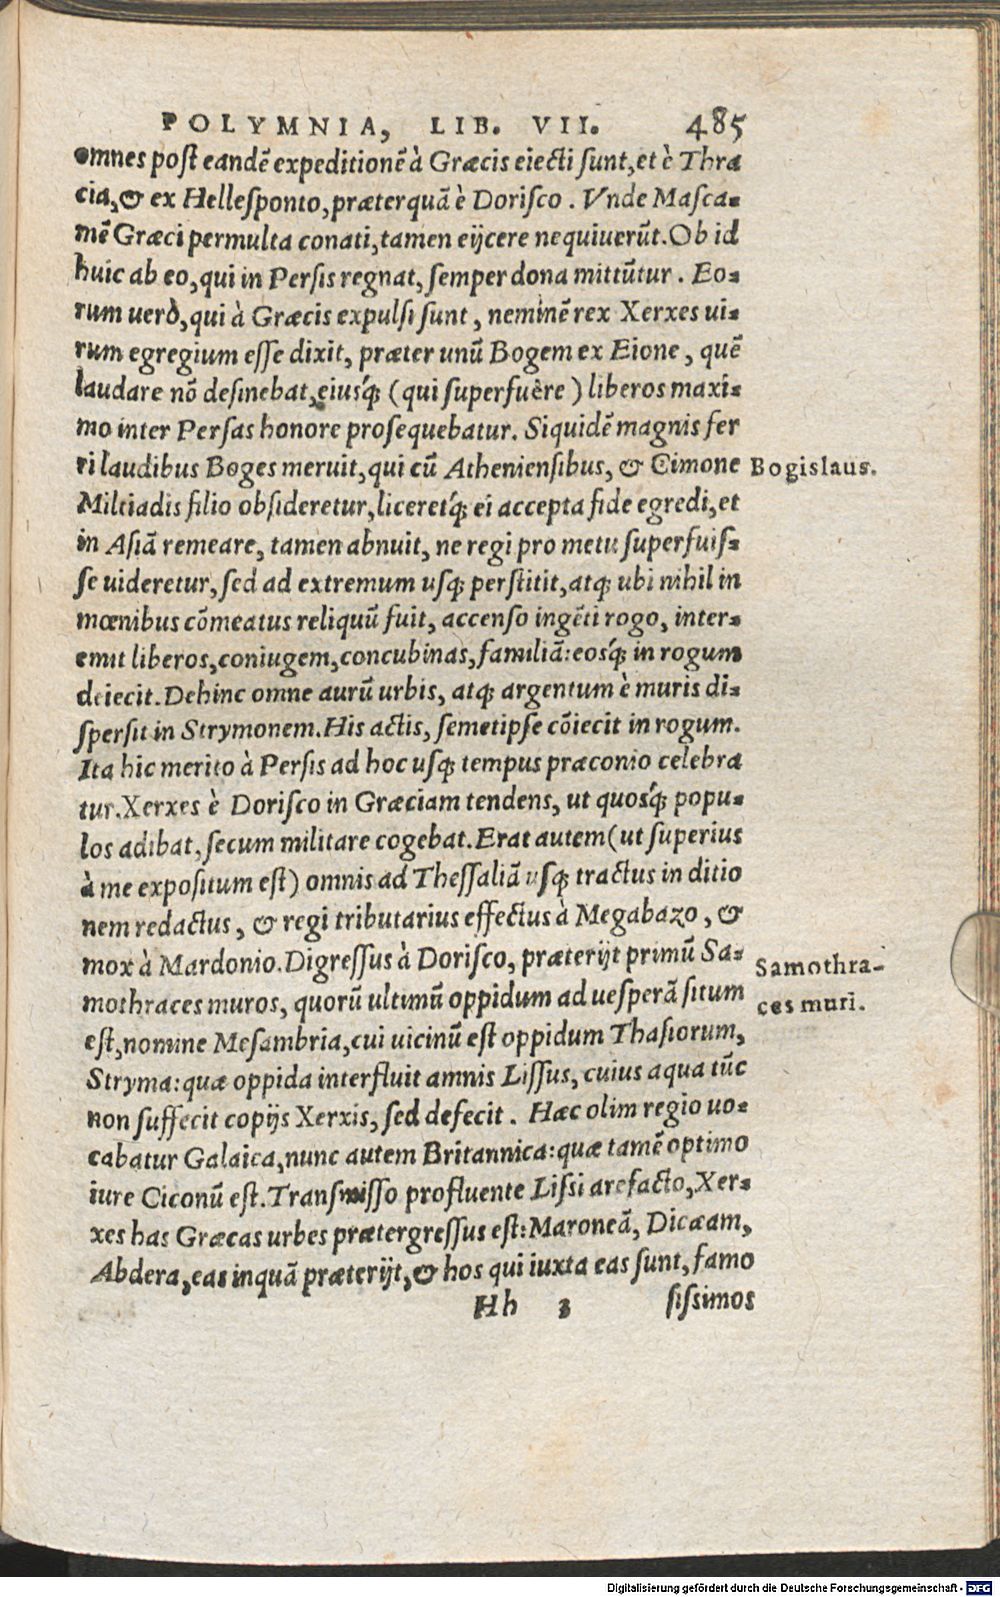 POLYMNIA, LIB. VII. 485
omnes post eandē expeditionē à Græcis eiecti sunt, et è Thra
cia, & ex Hellesponto, præterquā è Dorisco. Vnde Masca=
mē Græci permulta conati, tamen eijcere nequiuerūt. Ob id
huic ab eo, qui in Persis regnat, semper dona mittūtur. Eo=
rum uerò, qui à Græcis expulsi sunt, neminē rex Xerxes ui=
rum egregium esse dixit, præter unū Bogem ex Eione, quē
laudare nō desinebat, eiusq́; (qui superfuêre) liberos maxi=
mo inter Persas honore prosequebatur. Siquidē magnis fer
ri laudibus Boges meruit, qui cū Atheniensibus, & Cimone
Bogislaus.
Miltiadis filio obsideretur, liceretq́; ei accepta fide egredi, et
in Asiā remeare, tamen abnuit, ne regi pro metu superfuis=
se uideretur, sed ad extremum usq; perstitit, atq; ubi nihil in
mœnibus cōmeatus reliquū fuit, accenso ingēti rogo, inter=
emit liberos, coniugem, concubinas, familiā: eosq́; in rogum
deiecit. Dehinc omne aurū urbis, atq; argentum è muris di=
spersit in Strymonem. His actis, semetipse cōiecit in rogum.
Ita hic merito à Persis ad hoc usq; tempus præconio celebra
tur. Xerxes è Dorisco in Græciam tendens, ut quosq́; popu=
los adibat, secum militare cogebat. Erat autem (ut superius
à me expositum est) omnis ad Thessaliā usq; tractus in ditio
nem redactus, & regi tributarius effectus à Megabazo, &
mox à Mardonio. Digressus à Dorisco, præterijt primū Sa=
Samothra-
mothraces muros, quorū ultimū oppidum ad uesperā situm
ces muri.
est, nomine Mesambria, cui uicinū est oppidum Thasiorum,
Stryma: quæ oppida interfluit amnis Lissus, cuius aqua tūc
non suffecit copijs Xerxis, sed defecit. Hæc olim regio uo=
cabatur Galaica, nunc autem Britannica: quæ tamē optimo
iure Ciconū est. Transmisso profluente Lissi arefacto, Xer=
xes has Græcas urbes prætergressus est: Maroneā, Dicæam,
Abdera, eas inquā præterijt, & hos qui iuxta eas sunt, famo
Hh 3 sissimos
Digitalisierung gefördert durch die Deutsche Forschungsgemeinschaft - DFG